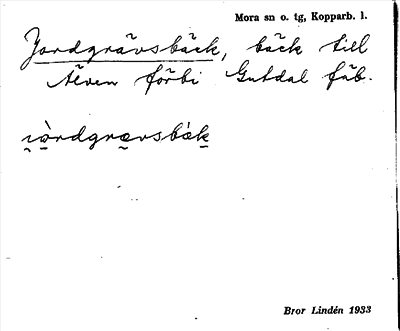 Mora sn o. tg, Kopparb. l.
Jordgrävsbäck, bäck till
Älven förbi Gutdal fäb.
Bror Lindén 1933